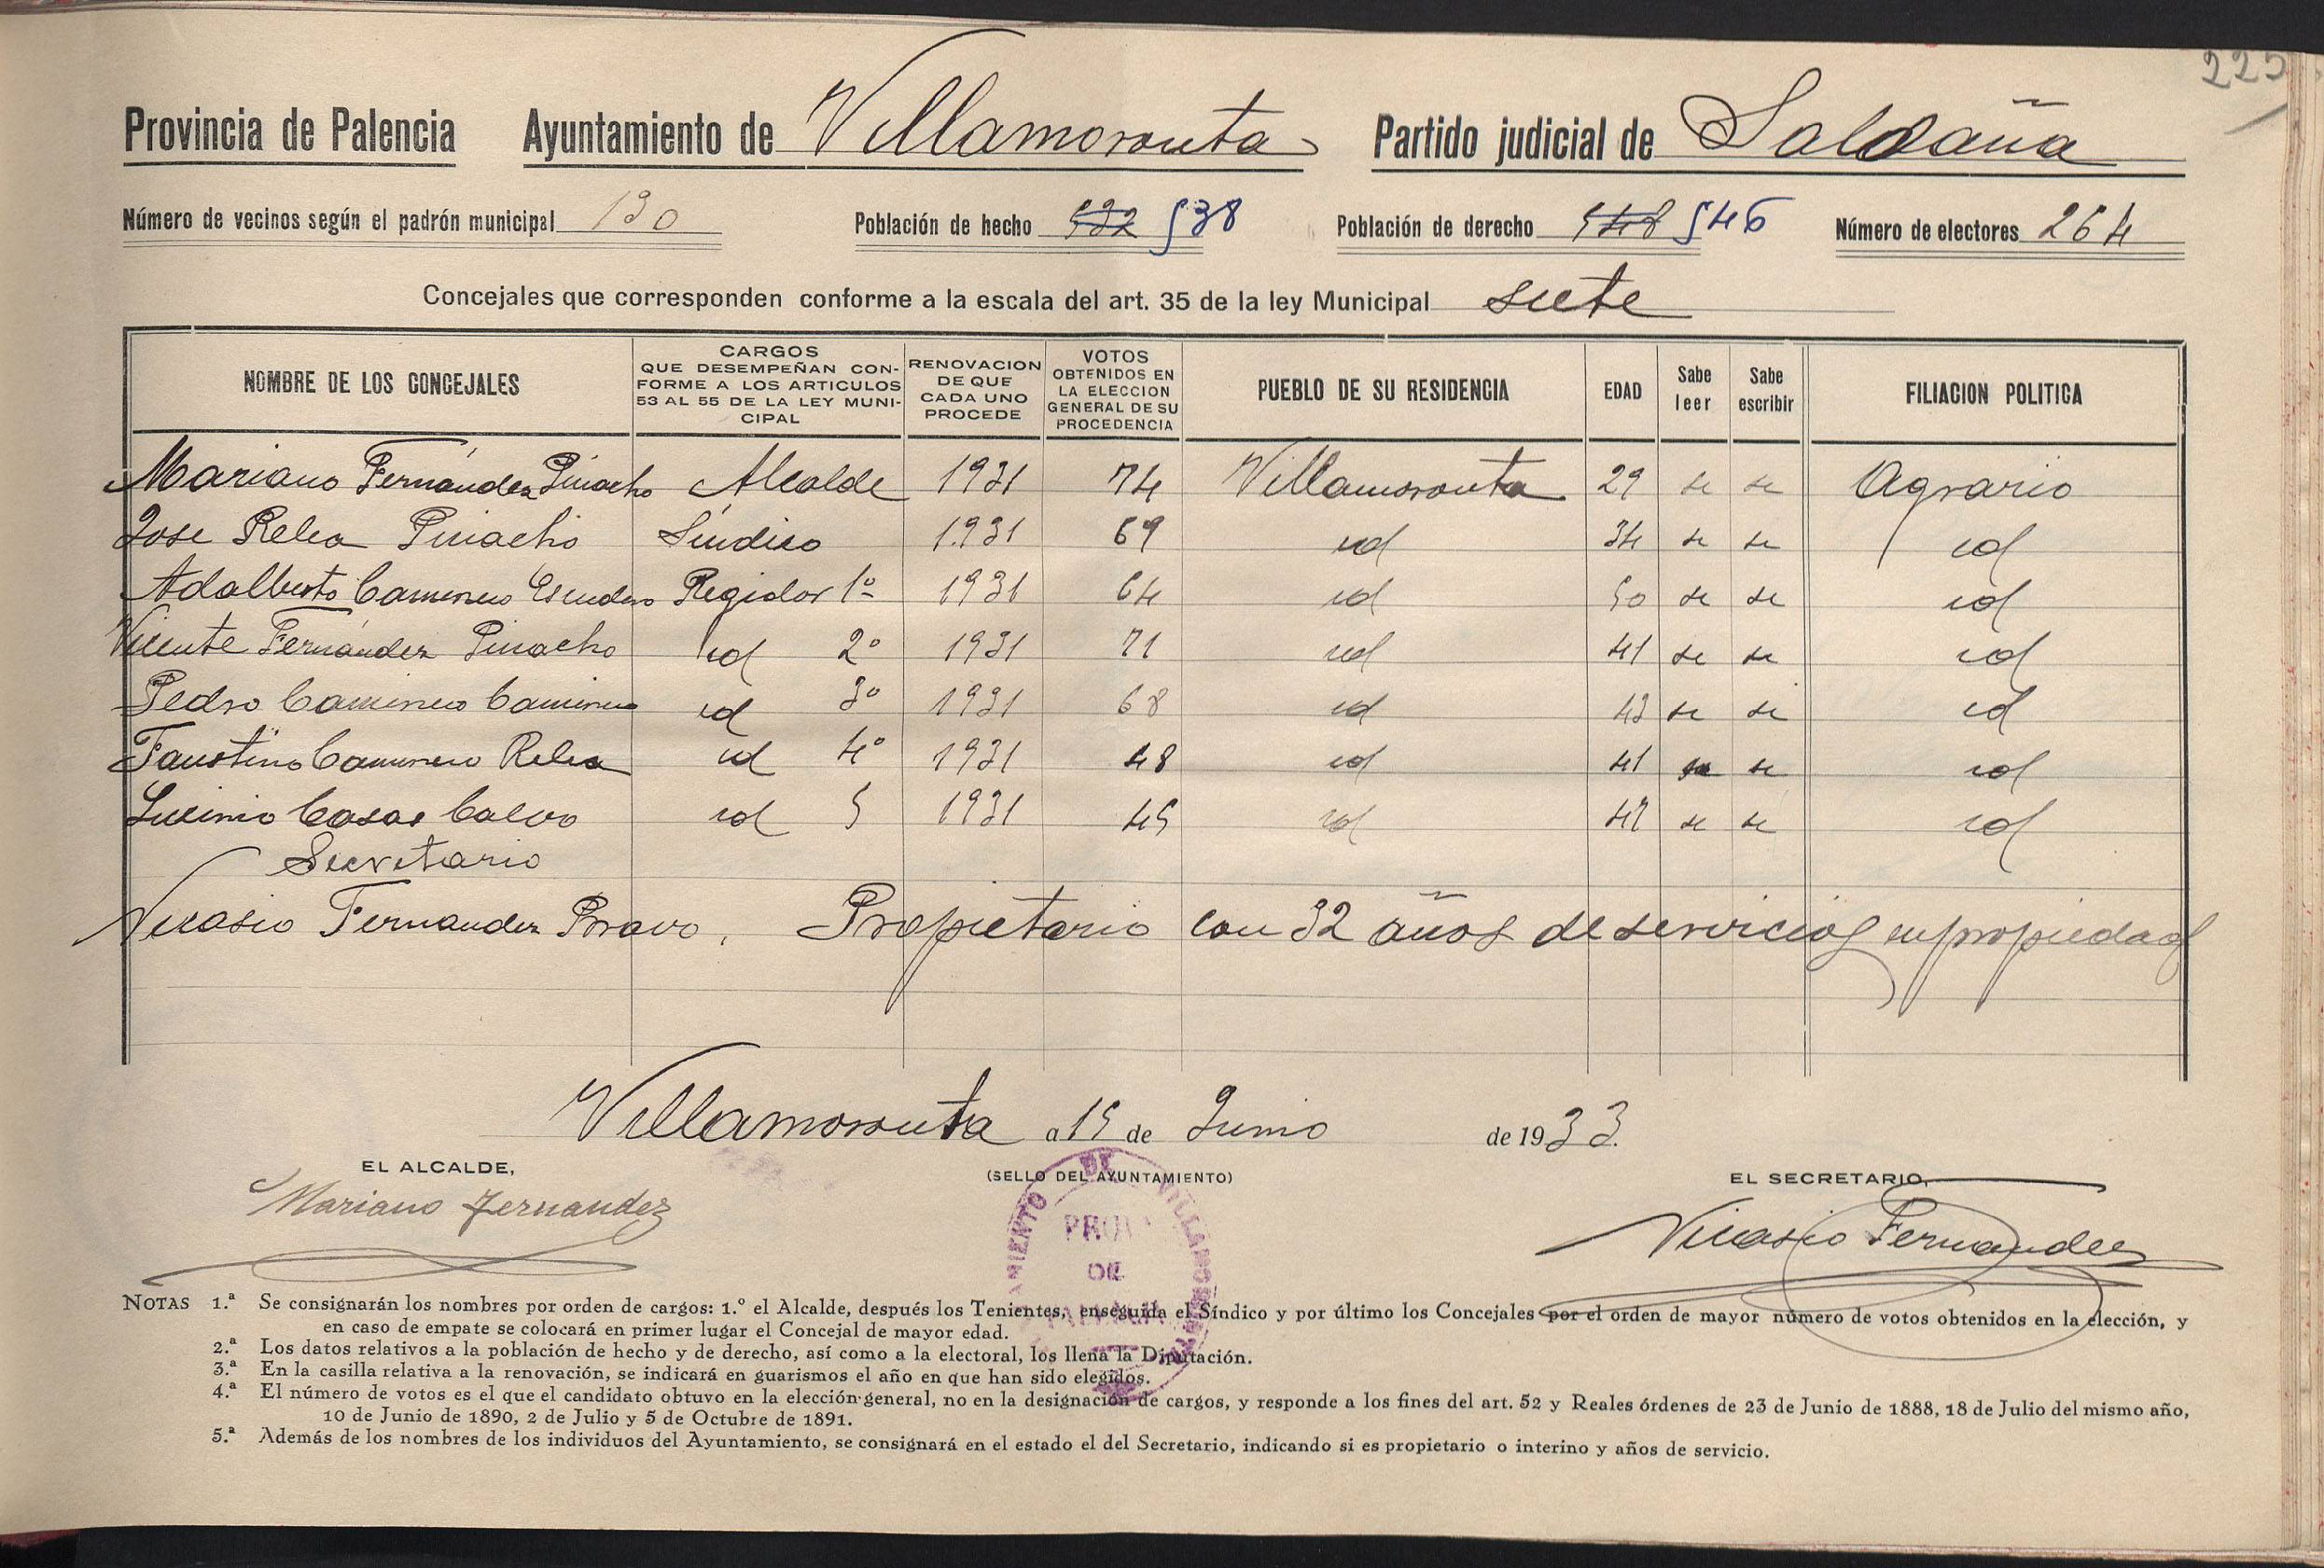 225
Provincia de Palencia Ayuntamiento de Villamoronta Partido judicial de Saldaña
Número de vecinos según el padrón municipal 130 Población de hecho 532 538 Población de derecho 548 546 Número de electores 264
Concejales que corresponden conforme a la escala del art. 35 de la ley Municipal siete
NOMBRE DE LOS CONCEJALES CARGOS QUE DESEMPEÑAN CONFORME A LOS ARTICULOS 53 AL 55 DE LA LEY MUNICIPAL RENOVACION DE QUE CADA UNO PROCEDE VOTOS OBTENIDOS EN LA ELECCION GENERAL DE SU PROCEDENCIA PUEBLO DE SU RESIDENCIA EDAD Sabe leer Sabe escribir FILIACION POLITICA
Mariano Fernández Pinacho Alcalde 1931 74 Villamoronta 29 si si Agrario
Jose Relea Pinacho Síndico 1931 69 id 34 si si id
Adalberto Caminero Escudero Regidor 1º 1931 64 id 50 si si id
Vicente Fernández Pinacho id 2º 1931 71 id 41 si si id
Pedro Caminero Caminero id 3º 1931 68 id 43 si si id
Faustino Caminero Relea id 4º 1931 48 id 41 si si id
Licinio Casas Calvo id 5 1931 45 id 47 si si id
Secretario
Nicasio Fernandez Bravo, Propietario con 32 años de servicios en propiedad
Villamoronta a 15 de Junio de 1933.
EL ALCALDE, (SELLO DEL AYUNTAMIENTO) EL SECRETARIO,
Mariano Fernandez Nicasio Fernandez
NOTAS 1.ª Se consignarán los nombres por orden de cargos: 1.º el Alcalde, después los Tenientes, enseguida el Síndico y por último los Concejales por el orden de mayor número de votos obtenidos en la elección, y
en caso de empate se colocará en primer lugar el Concejal de mayor edad.
2.ª Los datos relativos a la población de hecho y de derecho, así como a la electoral, los llena la Diputación.
3.ª En la casilla relativa a la renovación, se indicará en guarismos el año en que han sido elegidos.
4.ª El número de votos es el que el candidato obtuvo en la elección general, no en la designación de cargos, y responde a los fines del art. 52 y Reales órdenes de 23 de Junio de 1888, 18 de Julio del mismo año,
10 de Junio de 1890, 2 de Julio y 5 de Octubre de 1891.
5.ª Además de los nombres de los individuos del Ayuntamiento, se consignará en el estado el del Secretario, indicando si es propietario o interino y años de servicio.